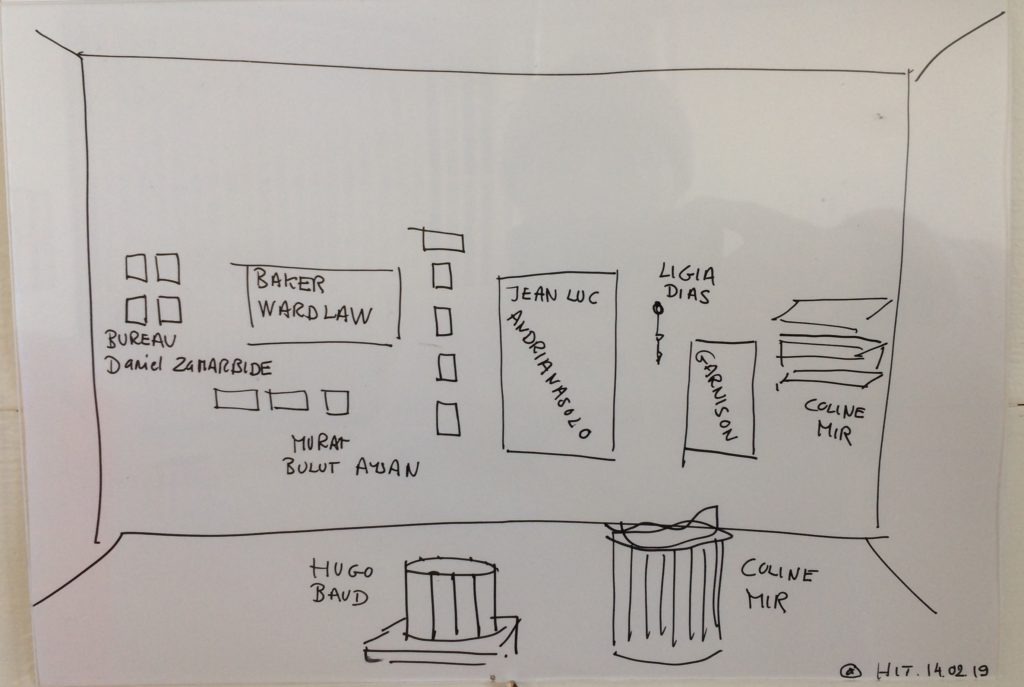 BAKER
WARDLAW
JEAN LUC
ANDRIANASOLO
LIGIA
DIAS
BUREAU
Daniel ZAMARBIDE
GARNISON
COLINE
MIR
MURAT
BULUT AYSAN
HUGO
BAUD
COLINE
MIR
HIT. 14.02.19